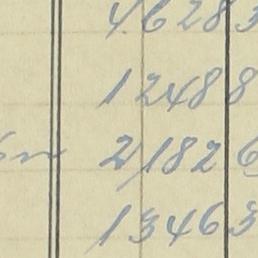 4628 3
1248 8
2182 6
1346 3